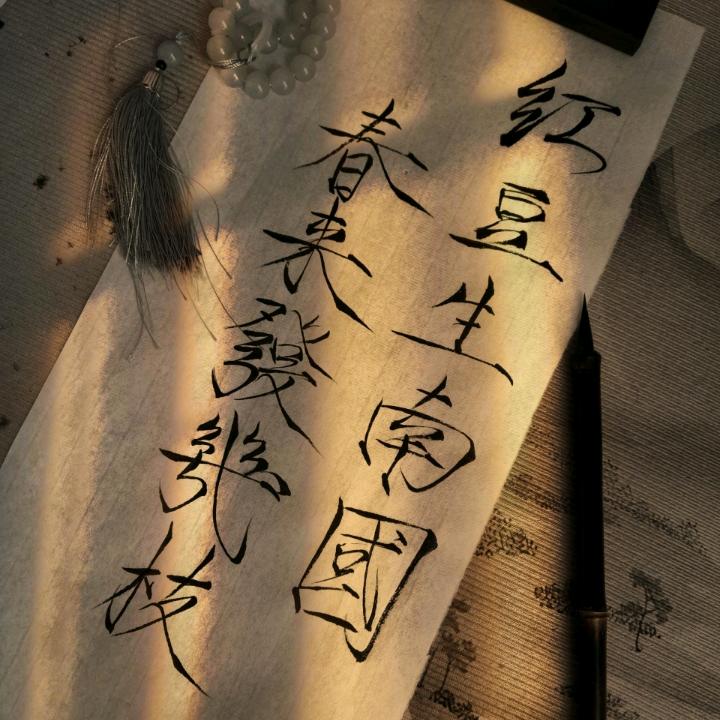 红豆生南國
春来發幾枝